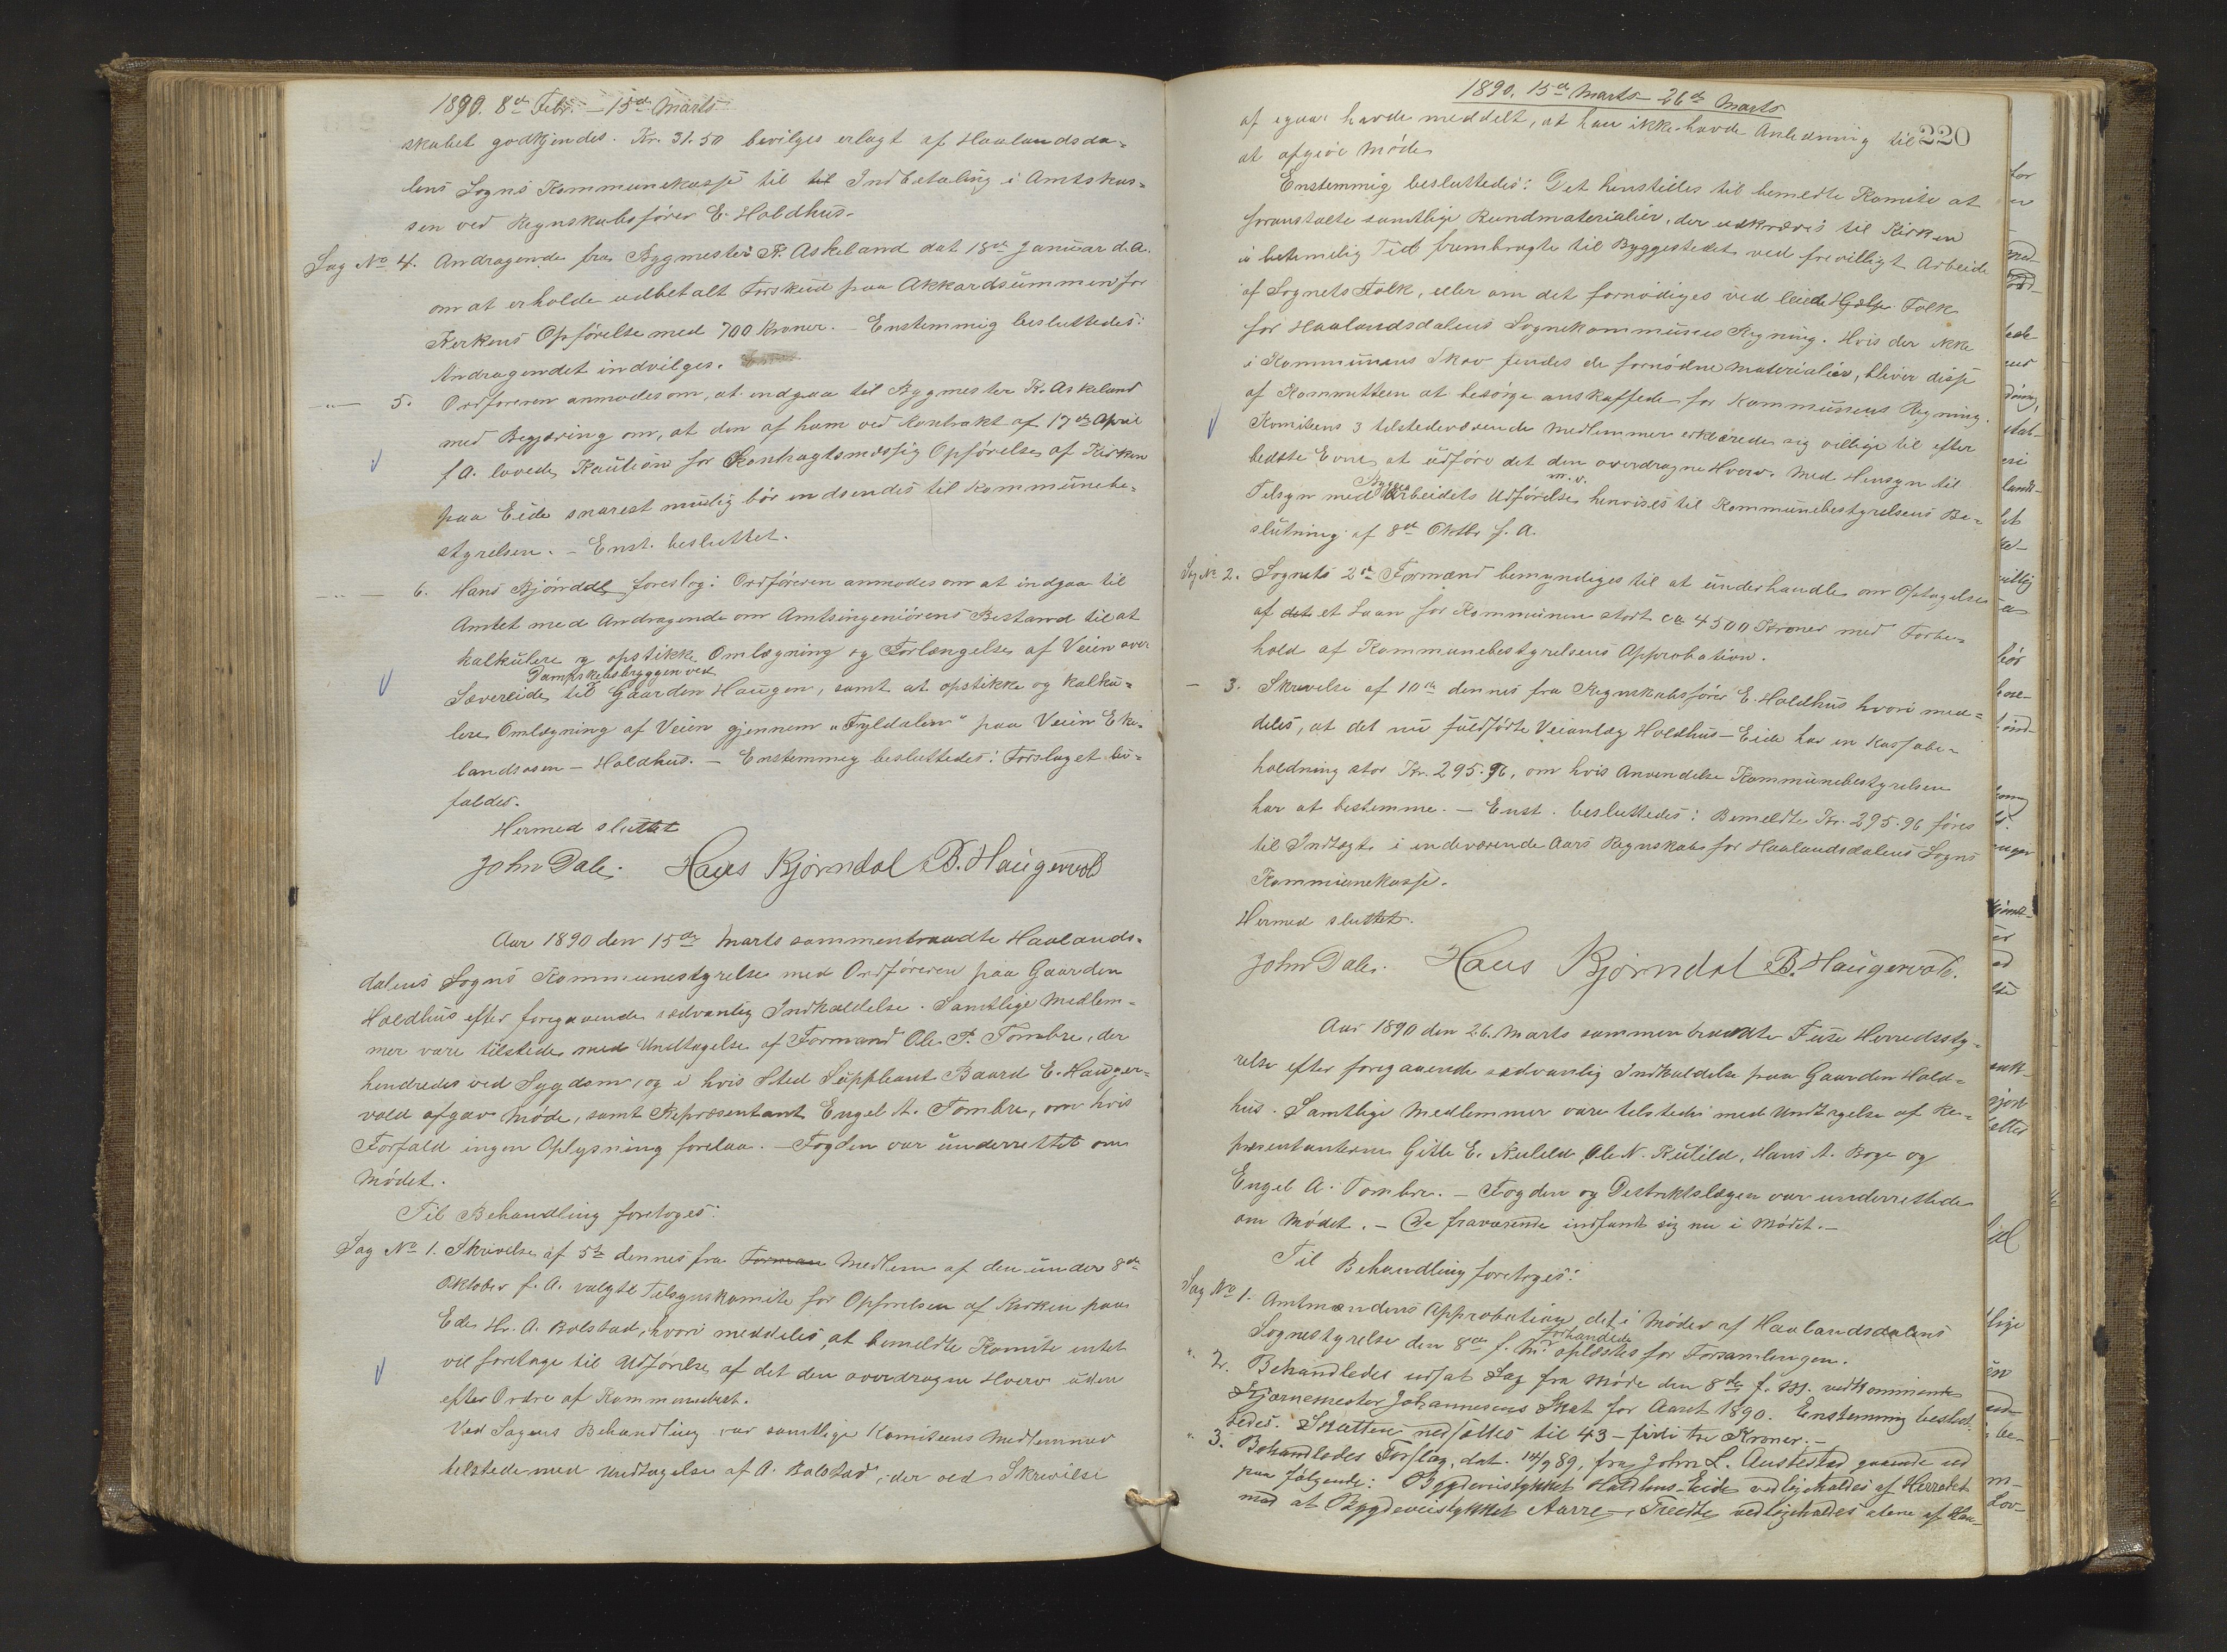 1890. 8de Febr. – 15de Marts
skabet godkjendes. Kr. 31.50 bevilges erlagt af Haalandsda-
lens Sogns Kommunekasse til til Indbetaling i Amtskas-
sen ved Regnskabsfører E. Holdhus.
Sag No 4. Andragende fra Bygmester K. Askeland dat 18de Januar d.A.
om at erholde udbetalt Forskud paa Akkordsummen for
Kirkens Opførelse med 700 Kroner. – Enstemmig besluttedes:
Andragendet indvilges.
–"– 5. Ordføreren anmodes om, at indgaa til Bygmester K. Askeland
med Begjæring om, at den af ham ved Kontrakt af 17de April
f A. lovede Kaution for Kontragtsmæssig Opførelse af Kirken
paa Eide snarest mulig bør indsendes til Kommunebe-
styrelsen. – Enst. besluttet.
–"– 6. Hans Bjørndal foreslog: Ordføreren anmodes om at indgaa til
Amtet med Andragende om Amtsingeniørens Bistand til at
kalkulere og opstikke Omlægning og Forlængelse af Veien over
Dampskibsbryggen ved
Sævereide til Gaarden Haugen, samt at opstikke og kalku-
lere Omlægning af Veien gjennem "Fyldalen" paa Veien Eke-
landsosen – Holdhus. – Enstemmig besluttedes: Forslaget bi-
faldes.
Hermed sluttet
John Dale. Hans Bjørndal B. Haugervold
Aar 1890 den 15de Marts sammentraadte Haalands-
dalens Sogns Kommunestyrelse med Ordføreren paa Gaarden
Holdhus efter foregaaende sedvanlig Indkaldelse. Samtlige Medlem-
mer vare tilstede med Undtagelse af Formand Ole P. Tombre, der
hindredes ved Sygdom, og i hvis Sted Suppleant Baard E. Hauger-
vold afgav Møde, samt Repræsentant Engel A. Tombre, om hvis
Forfald ingen Oplysning forelaa. – Fogden var underrettet om
Mødet.
Til Behandling foretoges:
Sag No 1. Skrivelse af 5te dennes fra Forman Medlem af den under 8de
Oktober f. A. valgte Tilsynskomite for Opførelsen af Kirken paa
Eide Hr. A. Bolstad, hvori meddeles, at bemeldte Komite intet
vil foretage til Udførelse af det den overdragne Hverv uden
efter Ordre af Kommunebest.
Ved Sagens Behandling var samtlige Komiteens Medlemmer
tilstede med Undtagelse af A. Bolstad, der ved Skrivelse
1890. 15de Marts – 26de Marts
af igaar havde meddelt, at han ikke havde Anledning til 220
at afgive Møde
Enstemmig besluttedes: Det henstilles til bemeldte Komite at
foranstalte samtlige Rundmaterialier, der udkræves til Kirken
i betimelig Tid frembragte til Byggestedet ved frivilligt Arbeide
af Sognets Folk, eller om det fornødiges ved leiede Hjælpe Folk
for Haalandsdalens Sognekommunes Regning. Hvis der ikke
i Kommunens Skov findes de fornødne Materialier, bliver disse
af Kommitteen at besørge anskaffede for Kommunens Regning.
Komiteens 3 tilstedeværende Medlemmer erklærede sig villige til efter
bedste Evne at udføre det den overdragne Hverv. Med Hensyn til
Bygge m. v.
Tilsyn med Arbeidets Udførelse henvises til Kommunebestyrelsens Be-
slutning af 8de Oktbr f. A.
Sag No 2. Sognets 2de Formænd bemyndiges til at underhandle om Optagelse
af det et Laan for Kommunen stort ca 4500 Kroner med Forbe-
hold af Kommunebestyrelsens Approbation.
– 3. Skrivelse af 10de dennes fra Regnskabsfører E. Holdhus hvori med-
deles, at det nu fuldførte Veianlæg Holdhus–Eide har en Kassabe-
holdning stor Kr. 295.96, om hvis Anvendelse Kommunebestyrelsen
har at bestemme. – Enst. besluttedes: Bemeldte Kr. 295.96 føres
til Indtægt i indeværende Aars Regnskab for Haalandsdalens Sogns
Kommunekasse.
Hermed sluttet.
John Dale. Hans Bjørndal B. Haugervold.
Aar 1890 den 26. Marts sammentraadte Fuse Herredssty-
relse efter foregaaende sedvanlig Indkaldelse paa Gaarden Hold-
hus. Samtlige Medlemmer vare tilstede med Undtagelse af Re-
præsentanterne Gitle E. Kuleld, Ole N. Kulild, Hans A. Boge og
Engel A. Tombre. – Fogden og Distriktslægen var underrettede
om Mødet. – De fraværende indfandt sig nu i Mødet. –
Til Behandling foretoges:
Sag No 1. Amtmandens Approbation det i Møder af Haalandsdalens
forhandlede
Sognestyrelse den 8de f. M. oplæstes for Forsamlingen.
" 2. Behandledes udsat Sag fra Møde den 8de f. M. vedkommende
Gjørnemester Johannesens Skat for Aaret 1890. Enstemmig beslut-
tedes: Skatten nedsættes til 43 – firti tre Kroner. –
" 3. Behandledes Forslag, dat. 14/9 89, fra John L. Austestad gaaende ud
paa følgende: Bygdeveistykket Holdhus–Eide vedligeholdes af Herredet
mod at Bygdeveistykket Aarre–Tredte vedligeholdes alene af Haa-